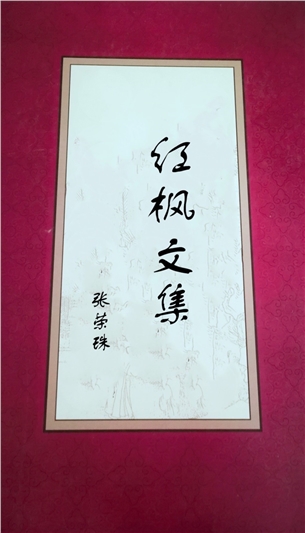 红枫文集
张荣珠